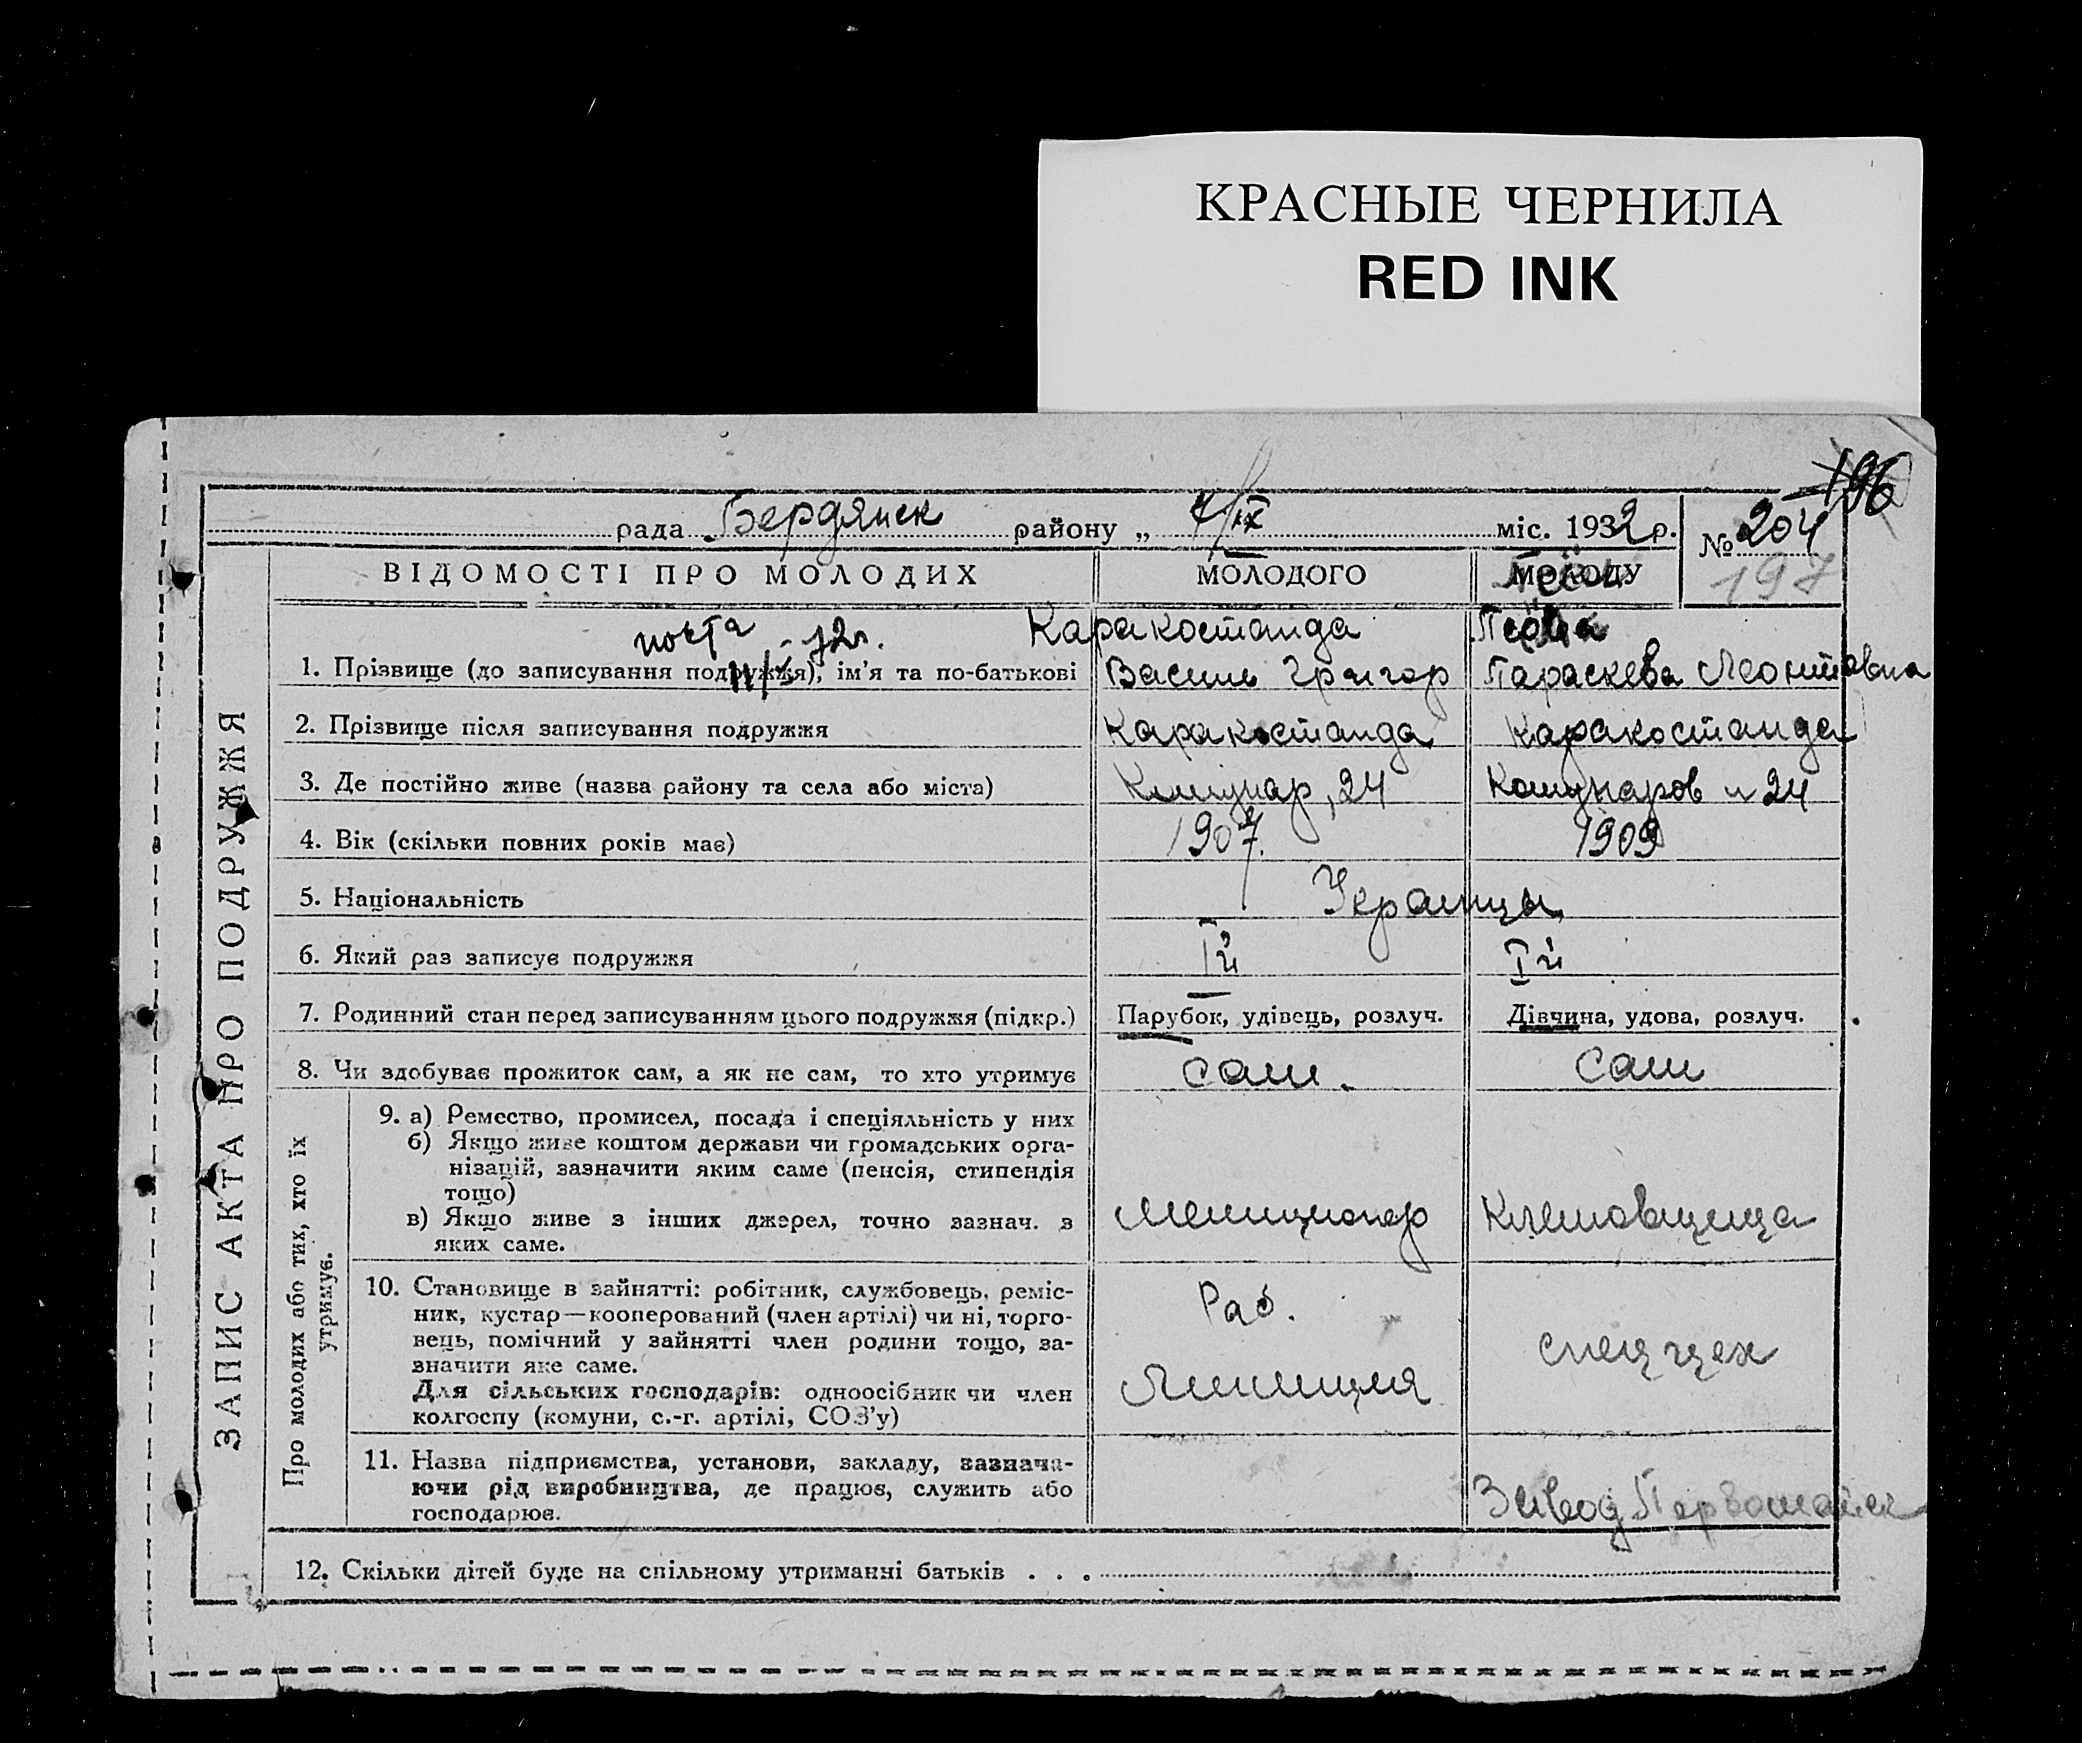 КРАСНЫЕ ЧЕРНИЛА
RED INK
196
рада Бердянск району „ 7/IX міс. 1932 р. № 204
197
ЗАПИС АКТА ПРО ПОДРУЖЖЯ
ВІДОМОСТІ ПРО МОЛОДИХ МОЛОДОГО МОЛОДУ
Каракостанда
1. Прізвище (до записування подружжя), ім'я та по-батькові Василь Григор Параскева Леонтовна
2. Прізвище після записування подружжя Каракостанда Каракостанда
3. Де постійно живе (назва району та села або міста) Комунар, 24 Комунаров 24
4. Вік (скільки повних років має) 1907. 1909
5. Національність Украинцы
6. Який раз записує подружжя Iй Iй
7. Родинний стан перед записуванням цього подружжя (підкр.) Парубок, удівець, розлуч. Дівчина, удова, розлуч.
8. Чи здобуває прожиток сам, а як не сам, то хто утримує сам. сам
Про молодих або тих, хто їх утримує.
9. а) Ремество, промисел, посада і спеціяльність у них
б) Якщо живе коштом держави чи громадських орга-
нізацій, зазначити яким саме (пенсія, стипендія
тощо)
в) Якщо живе з інших джерел, точно зазнач. з
яких саме.
Милиционер Клетовщица
10. Становище в зайнятті: робітник, службовець, реміс-
ник, кустар—кооперований (член артілі) чи ні, торго-
вець, помічний у зайнятті член родини тощо, за-
значити яке саме.
Для сільських господарів: одноосібник чи член
колгоспу (комуни, с.-г. артілі, СОЗ'у)
Раб.
Милиция
спец цех
11. Назва підприємства, установи, закладу, зазнача-
ючи рід виробництва, де працює, служить або
господарює.
Завод Первомайск
12. Скільки дітей буде на спільному утриманні батьків . . .